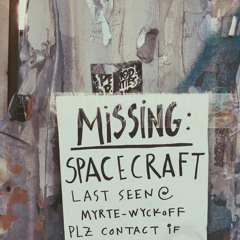 MISSING:
SPACECRAFT
LAST SEEN @
MYRTE-WYCKOFF
PLZ CONTACT IF